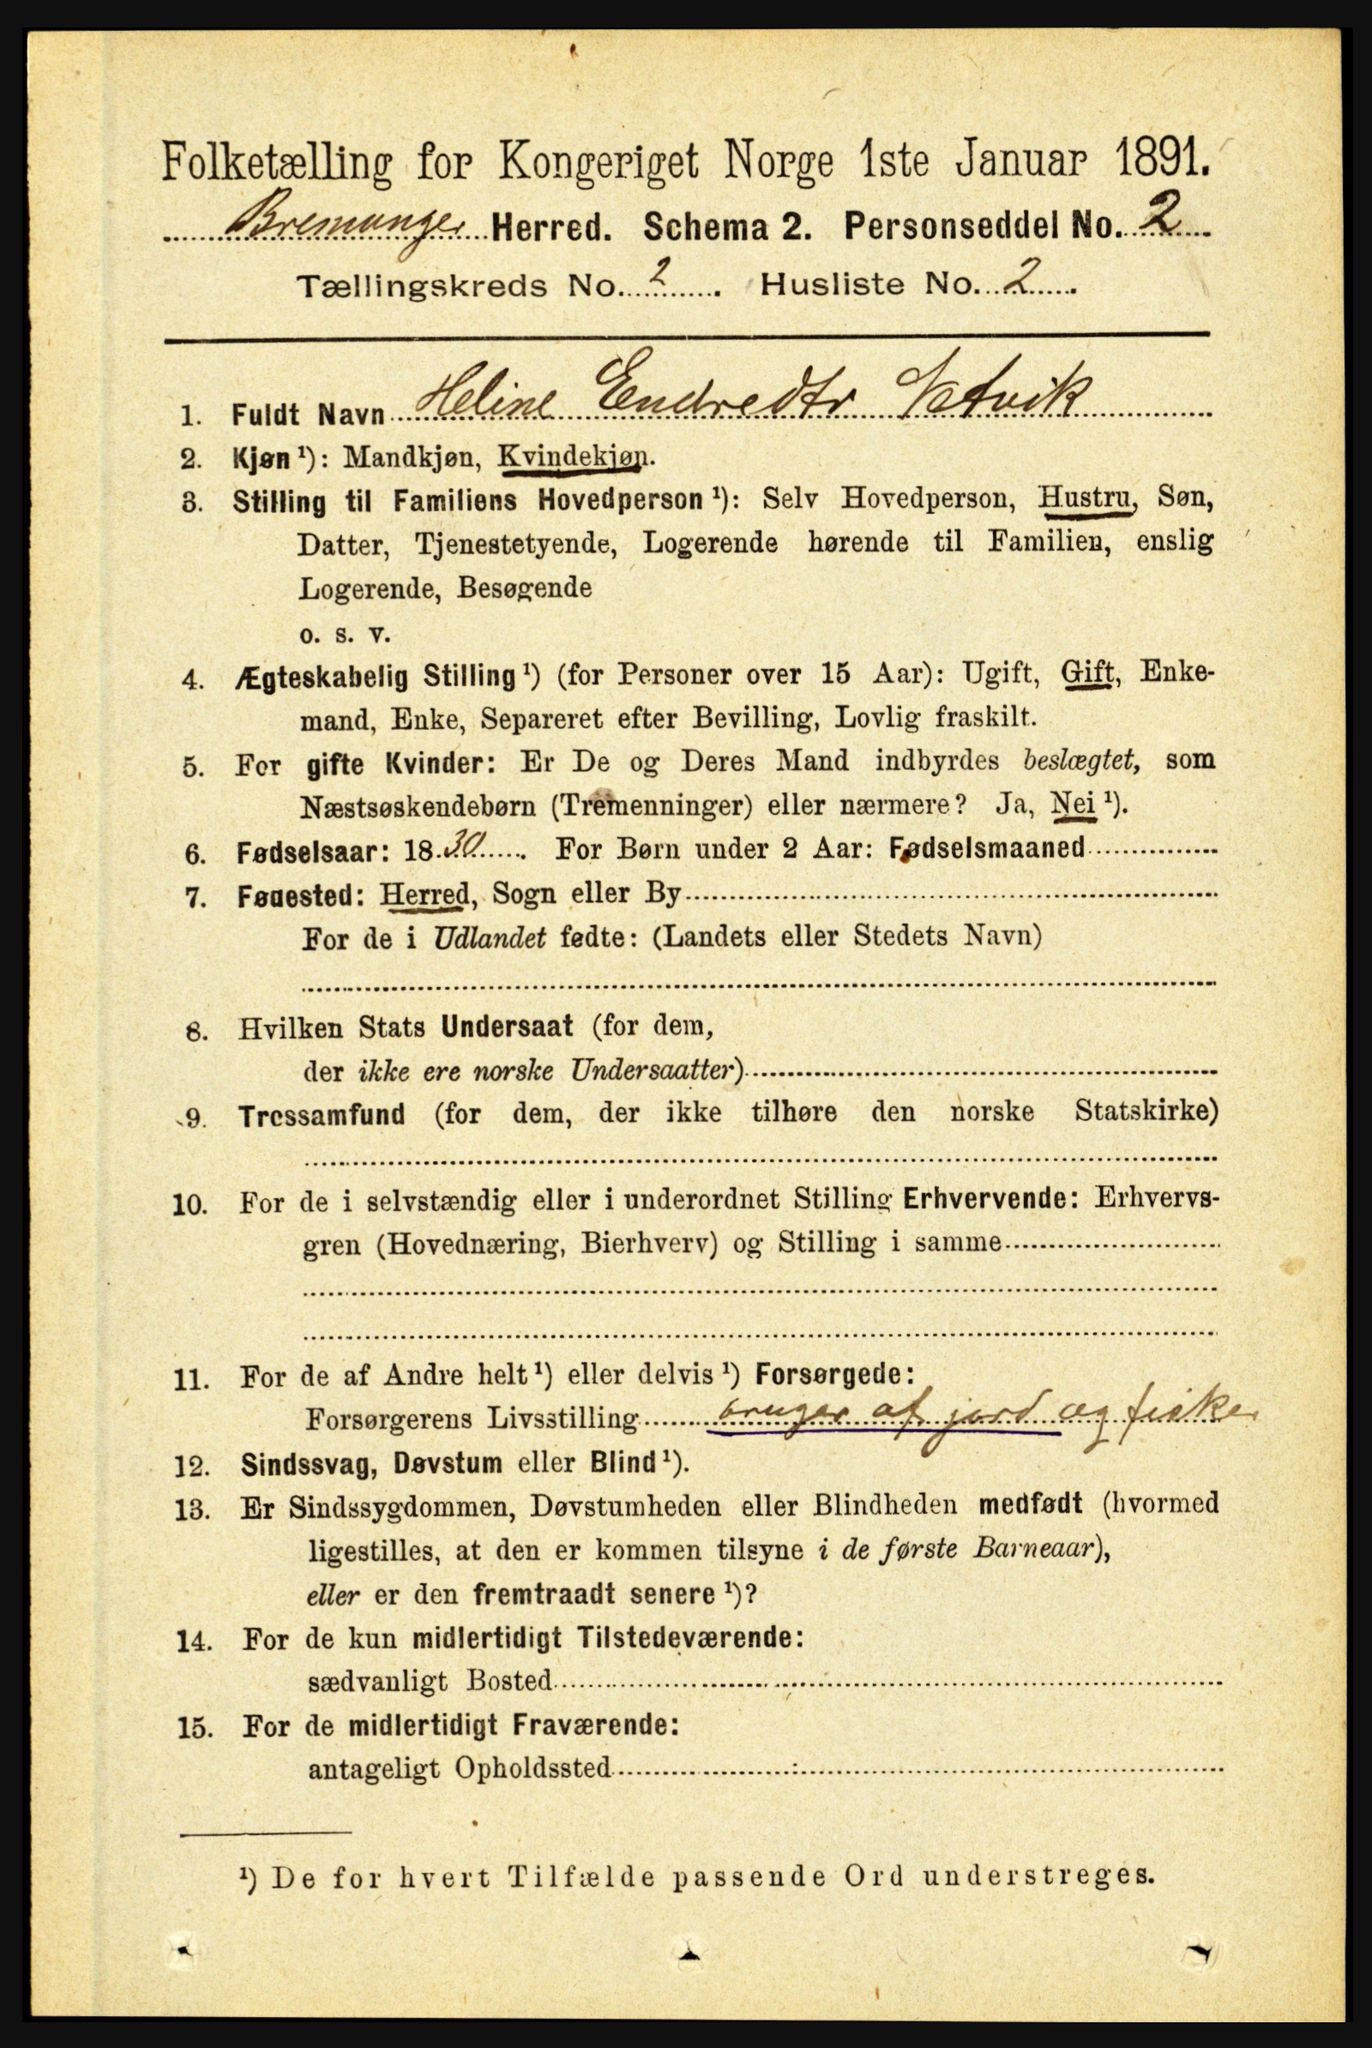 Folketælling for Kongeriget Norge 1ste Januar 1891.
Bremanger Herred. Schema 2. Personseddel No. 2
Tællingskreds No. 2. Husliste No. 2.
1. Fuldt Navn Heline Endredtr Vetvik
2. Kjøn ¹): Mandkjøn, Kvindekjøn.
3. Stilling til Familiens Hovedperson ¹): Selv Hovedperson, Hustru, Søn,
Datter, Tjenestetyende, Logerende hørende til Familien, enslig
Logerende, Besøgende
o. s. v.
4. Ægteskabelig Stilling ¹) (for Personer over 15 Aar): Ugift, Gift, Enke-
mand, Enke, Separeret efter Bevilling, Lovlig fraskilt.
5. For gifte Kvinder: Er De og Deres Mand indbyrdes beslægtet, som
Næstsøskendebørn (Tremenninger) eller nærmere? Ja, Nei ¹).
6. Fødselsaar: 1830. For Børn under 2 Aar: Fødselsmaaned
7. Fødested: Herred, Sogn eller By
For de i Udlandet fødte: (Landets eller Stedets Navn)
8. Hvilken Stats Undersaat (for dem,
der ikke ere norske Undersaatter)
9. Trossamfund (for dem, der ikke tilhøre den norske Statskirke)
10. For de i selvstændig eller i underordnet Stilling Erhvervende: Erhvervs-
gren (Hovednæring, Bierhverv) og Stilling i samme
11. For de af Andre helt ¹) eller delvis ¹) Forsørgede:
Forsørgerens Livsstilling bruger af jord og fisker
12. Sindssvag, Døvstum eller Blind ¹).
13. Er Sindssygdommen, Døvstumheden eller Blindheden medfødt (hvormed
ligestilles, at den er kommen tilsyne i de første Barneaar),
eller er den fremtraadt senere ¹)?
14. For de kun midlertidigt Tilstedeværende:
sædvanligt Bosted
15. For de midlertidigt Fraværende:
antageligt Opholdssted
¹) De for hvert Tilfælde passende Ord understreges.